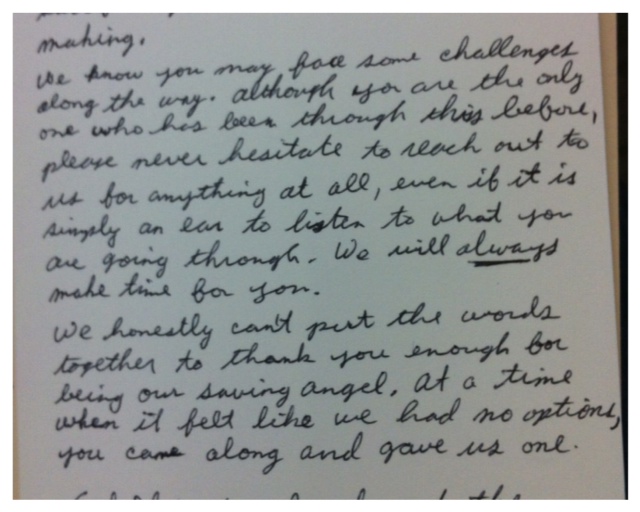 making.
We know you may face some challenges
along the way. Although you are the only
one who has been through this before,
please never hesitate to reach out to
us for anything at all, even if it is
simply an ear to listen to what you
are going through. We will always
make time for you.
We honestly can't put the words
together to thank you enough for
being our saving angel. At a time
when it felt like we had no options,
you came along and gave us one.